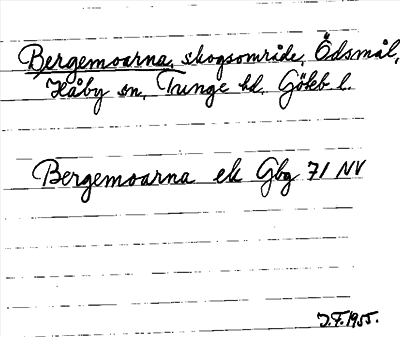 Bergemoarna, skogsområde, Ödsmål,
Håby sn, Tunge hd, Götb l.
Bergemoarna ek Gbg 71 NV
J.F. 1955.